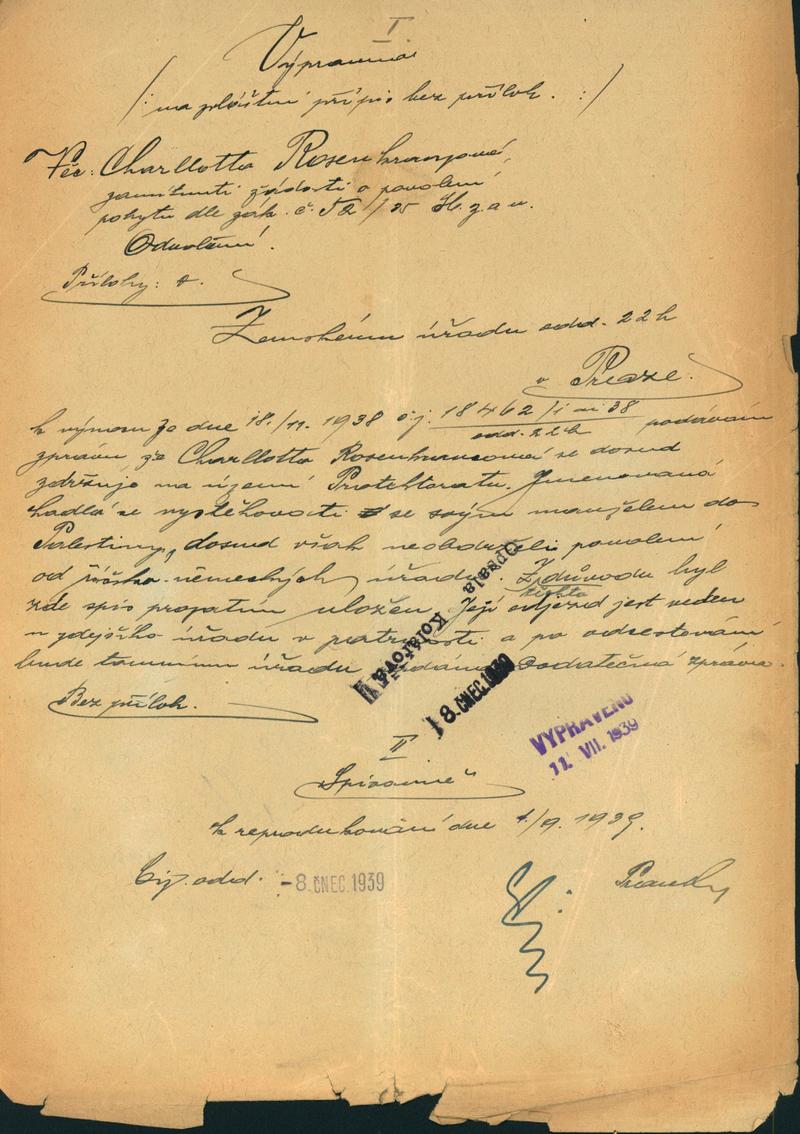 I.
Výpravna
/: na zvláštní přípis bez příloh. :/
Věc: Charllotta Rosenkranzová,
zamítnutí žádosti o povolení
pobytu dle zák. č. 52/35 Sb. z. a n.
Odvolání.
Přílohy:
Zemskému úřadu odd. 22b
v Praze.
K výnosu ze dne 18./11. 1938 č.j. 18462/i ai 38
odd. 22b podávám
zprávu, že Charllotta Rosenkranzová se dosud
zdržuje na území Protektorátu. Jmenovaná
hodlá se vystěhovati se svým manželem do
Palestiny, dosud však neobdrželi povolení
od německých úřadů. Z důvodu byl
těchto
zde spis prozatím uložen. Její odjezd jest veden
u zdejšího úřadu v patrnosti a po odcestování
bude tamnímu úřadu podána dodatečná zpráva.
Bez příloh.
Opsala Kolářová
18. ČNEC. 1939
VYPRAVENO
11. VII. 1939
II
Spisovně
k reprodukování dne 1/9. 1939.
Ciz. odd. -8. ČNEC. 1939